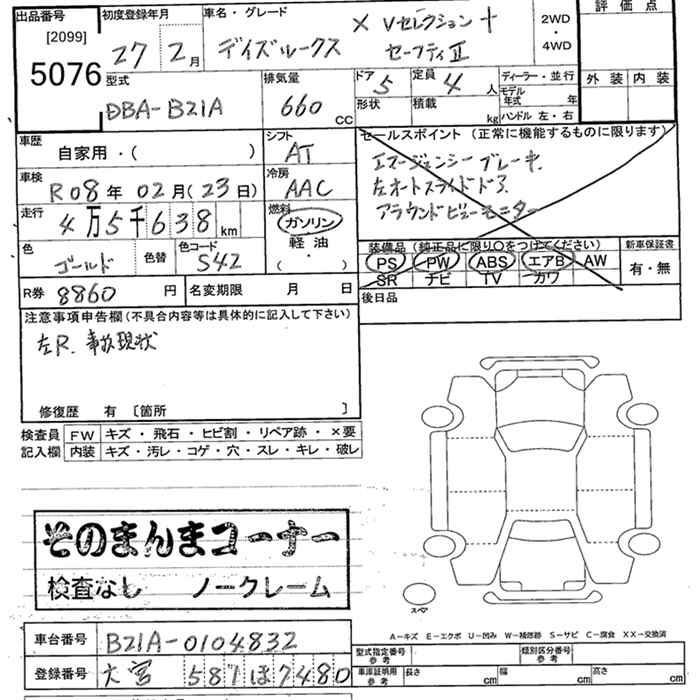 出品番号 [2099] 5076
初度登録年月 27年 2月
車名・グレード デイズルークス X Vセレクション+セーフティⅡ
2WD・4WD
評価点
外装 内装
型式 DBA-B21A
排気量 660 CC
ドア 5
形状
定員 4 人
積載 kg
ディーラー・並行
モデル年式 年
ハンドル 左・右
車歴 自家用・( )
シフト AT
セールスポイント (正常に機能するものに限ります)
エマージェンシーブレーキ.
左オートスライドドア.
アラウンドビューモニター
車検 R08年 02月 (23日)
冷房 AAC
走行 4万5千638km
燃料 ガソリン 軽油 ( ・ )
色 ゴールド
色替
色コード S42
装備品 (純正品に限り○をつけてください)
PS PW ABS エアB AW
SR ナビ TV カワ
新車保証書 有・無
R券 8860 円
名変期限 月 日
後日品
注意事項申告欄 (不具合内容等は具体的に記入して下さい)
左R. 事故現状
修復歴 有 〔箇所 〕
検査員記入欄
FW キズ・飛石・ヒビ割・リペア跡・×要
内装 キズ・汚レ・コゲ・穴・スレ・キレ・破レ
そのまんまコーナー
検査なし ノークレーム
スペア
A-キズ E-エクボ U-凹み W-補修跡 S-サビ C-腐食 XX-交換済
車台番号 B21A-0104832
登録番号 大宮 581 ほ 7480
型式指定番号 参考
類別区分番号 参考
車庫証明用 参考 長さ cm 幅 cm 高さ cm